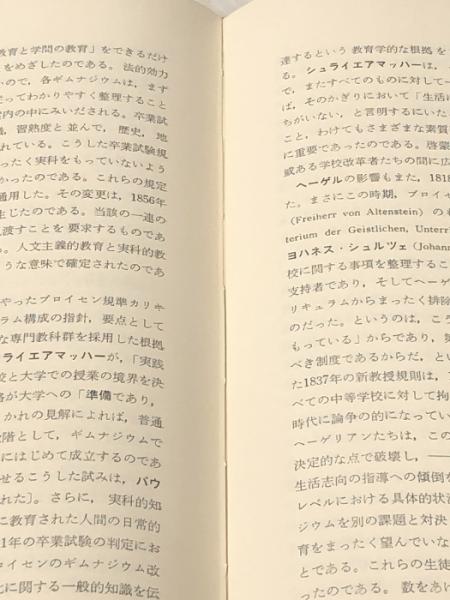 教育と学問の教育」をできるだけ
をめざしたのである。法的効力
いので，各ギムナジウムは，まず
とってわかりやすく整理すること
案内の中にみいだされる。卒業試
識，習熟度と並んで，歴史，地
れている。こうした卒業試験規
ったく実科をもっていないよう
かったのである。これらの規定
通用した。その変更は，1856年
生じたのである。当該の一連の
見渡すことを要求するものであ
る。人文主義的教育と実科的教
うな意味で確定されたのであ
やったプロイセン規準カリキ
ラム構成の指針，要点として
な専門教科群を採用した根拠
ライエアマッハーが，「実践
校と大学での授業の境界を決
格が大学への「準備であり，
かれの見解によれば，普通
段階として，ギムナジウムで
にはじめて成立するのであ
せるこうした試みは，パウ
れた〕。さらに，実科的知
に教育された人間の日常的
1年の卒業試験の判定にお
ロイセンのギムナジウム改
に関する一般的知識を伝
達するという教育学的な根拠を
る。シュライエアマッハーは，
で，またすべてのものに対して一
ば，そのかぎりにおいて「生活に
ちがいない，と言明するにいた
こと，わけてもさまざまな素質
に重要であったのである。啓蒙
威ある学校改革者たちの間に広
ヘーゲルの影響もまた，1818
た。まさにこの時期，プロイセ
(Freiherr von Altenstein) の
terium der Geistlichen, Unterr
ヨハネス・シュルツェ (Johann
校に関する事項を整理すること
支持者であり，そしてヘーゲ
リキュラムからまったく排除
のだった。というのは，ころ
もっている」からであり，
べき制度であるからだ，とい
た1837年の新教授規則は，
べての中等学校に対して拘
時代に論争の的になってい
ヘーゲリアンたちは，この
決定的な点で破壊し，―
生活志向の指導への傾倒を
レベルにおける具体的状況
ジウムを別の課題と対決
育をまったく望んでいな
とである。これらの生徒
ったのである。数をあげ